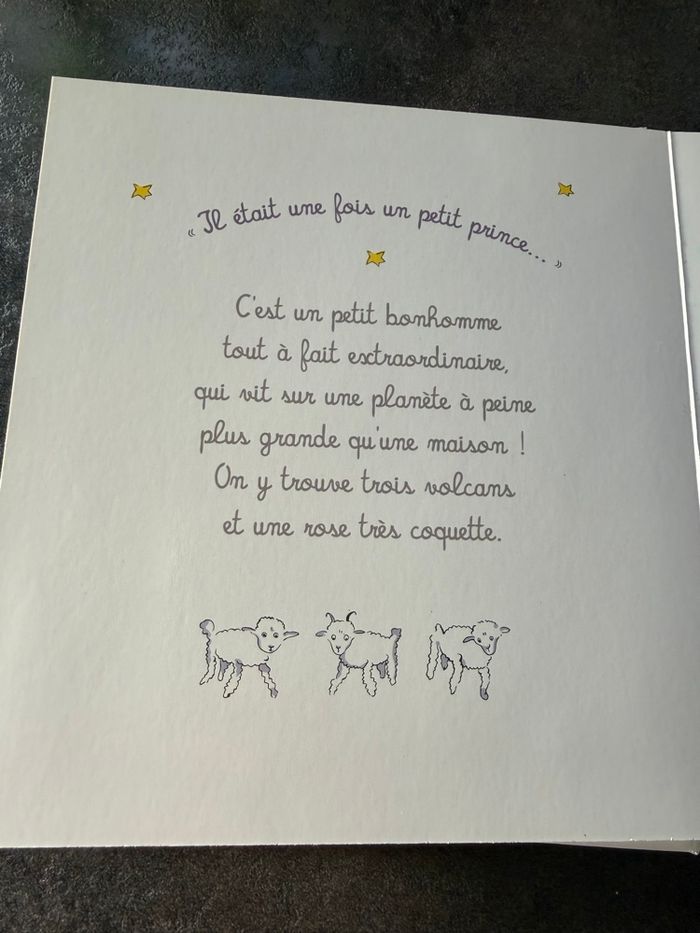 « Il était une fois un petit prince... »
C'est un petit bonhomme
tout à fait extraordinaire,
qui vit sur une planète à peine
plus grande qu'une maison !
On y trouve trois volcans
et une rose très coquette.